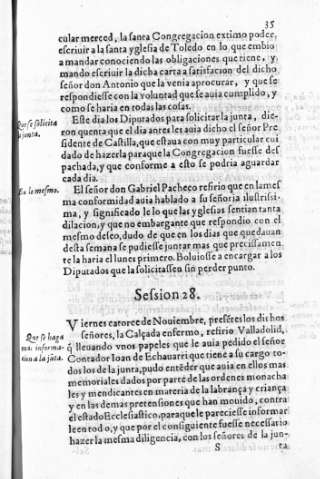 35
cular merced, la santa Congregacion extimo poder,
escriuir a la santa yglesia de Toledo en lo que embio
a mandar conociendo las obligaciones que tiene, y
mando escriuir la dicha carta a satisfacion del dicho
señor don Antonio que la venia aprocurar, y que se
respondiesse con la voluntad que se auia cumplido, y
como se haria en todas las cosas.
Que se solicita
la junta.
Este dia los Diputados para solicitar la junta, die-
ron quenta que el dia antes les auia dicho el señor Pre
sidente de Castilla, que estaua con muy particular cui
dado de hazerla para que la Congregacion fuesse des
pachada, y que conforme a esto se podria aguardar
cada dia.
En lo mesmo.
El señor don Gabriel Pacheco refirio que en la mes
ma conformidad auia hablado a su señoria ilustrissi-
ma, y significado le lo que las yglesias sentian tanta
dilacion, y que no embargante que respondio con el
mesmo desseo, dudo de que en los dias que quedauan
desta semana se pudiesse juntar mas que precissamen
te la haria el lunes primero. Boluiosse a encargar a los
Diputados que la solicitassen sin perder punto.
Session 28.
Viernes catorce de Nouiembre, presentes los dichos
señores, la Calçada enfermo, refirio Valladolid,
Que se haga
mas informa-
cion a la junta.
q̃ llenando vnos papeles que le auia pedido el señor
Contador Ioan de Echauarri que tiene a su cargo to-
dos los de la junta, pudo entẽder que auia en ellos mas
memoriales dados por parte de las ordenes monacha
les y mendicantes en materia de la labrança y criança
y en las demas pretensiones que han mouido, contra
el estado Ecclesiastico, para que le pareciesse informar
le en todo, y que por el consiguiente fuesse necessario
hazer la mesma diligencia, con los señores de la jun-
S
ta